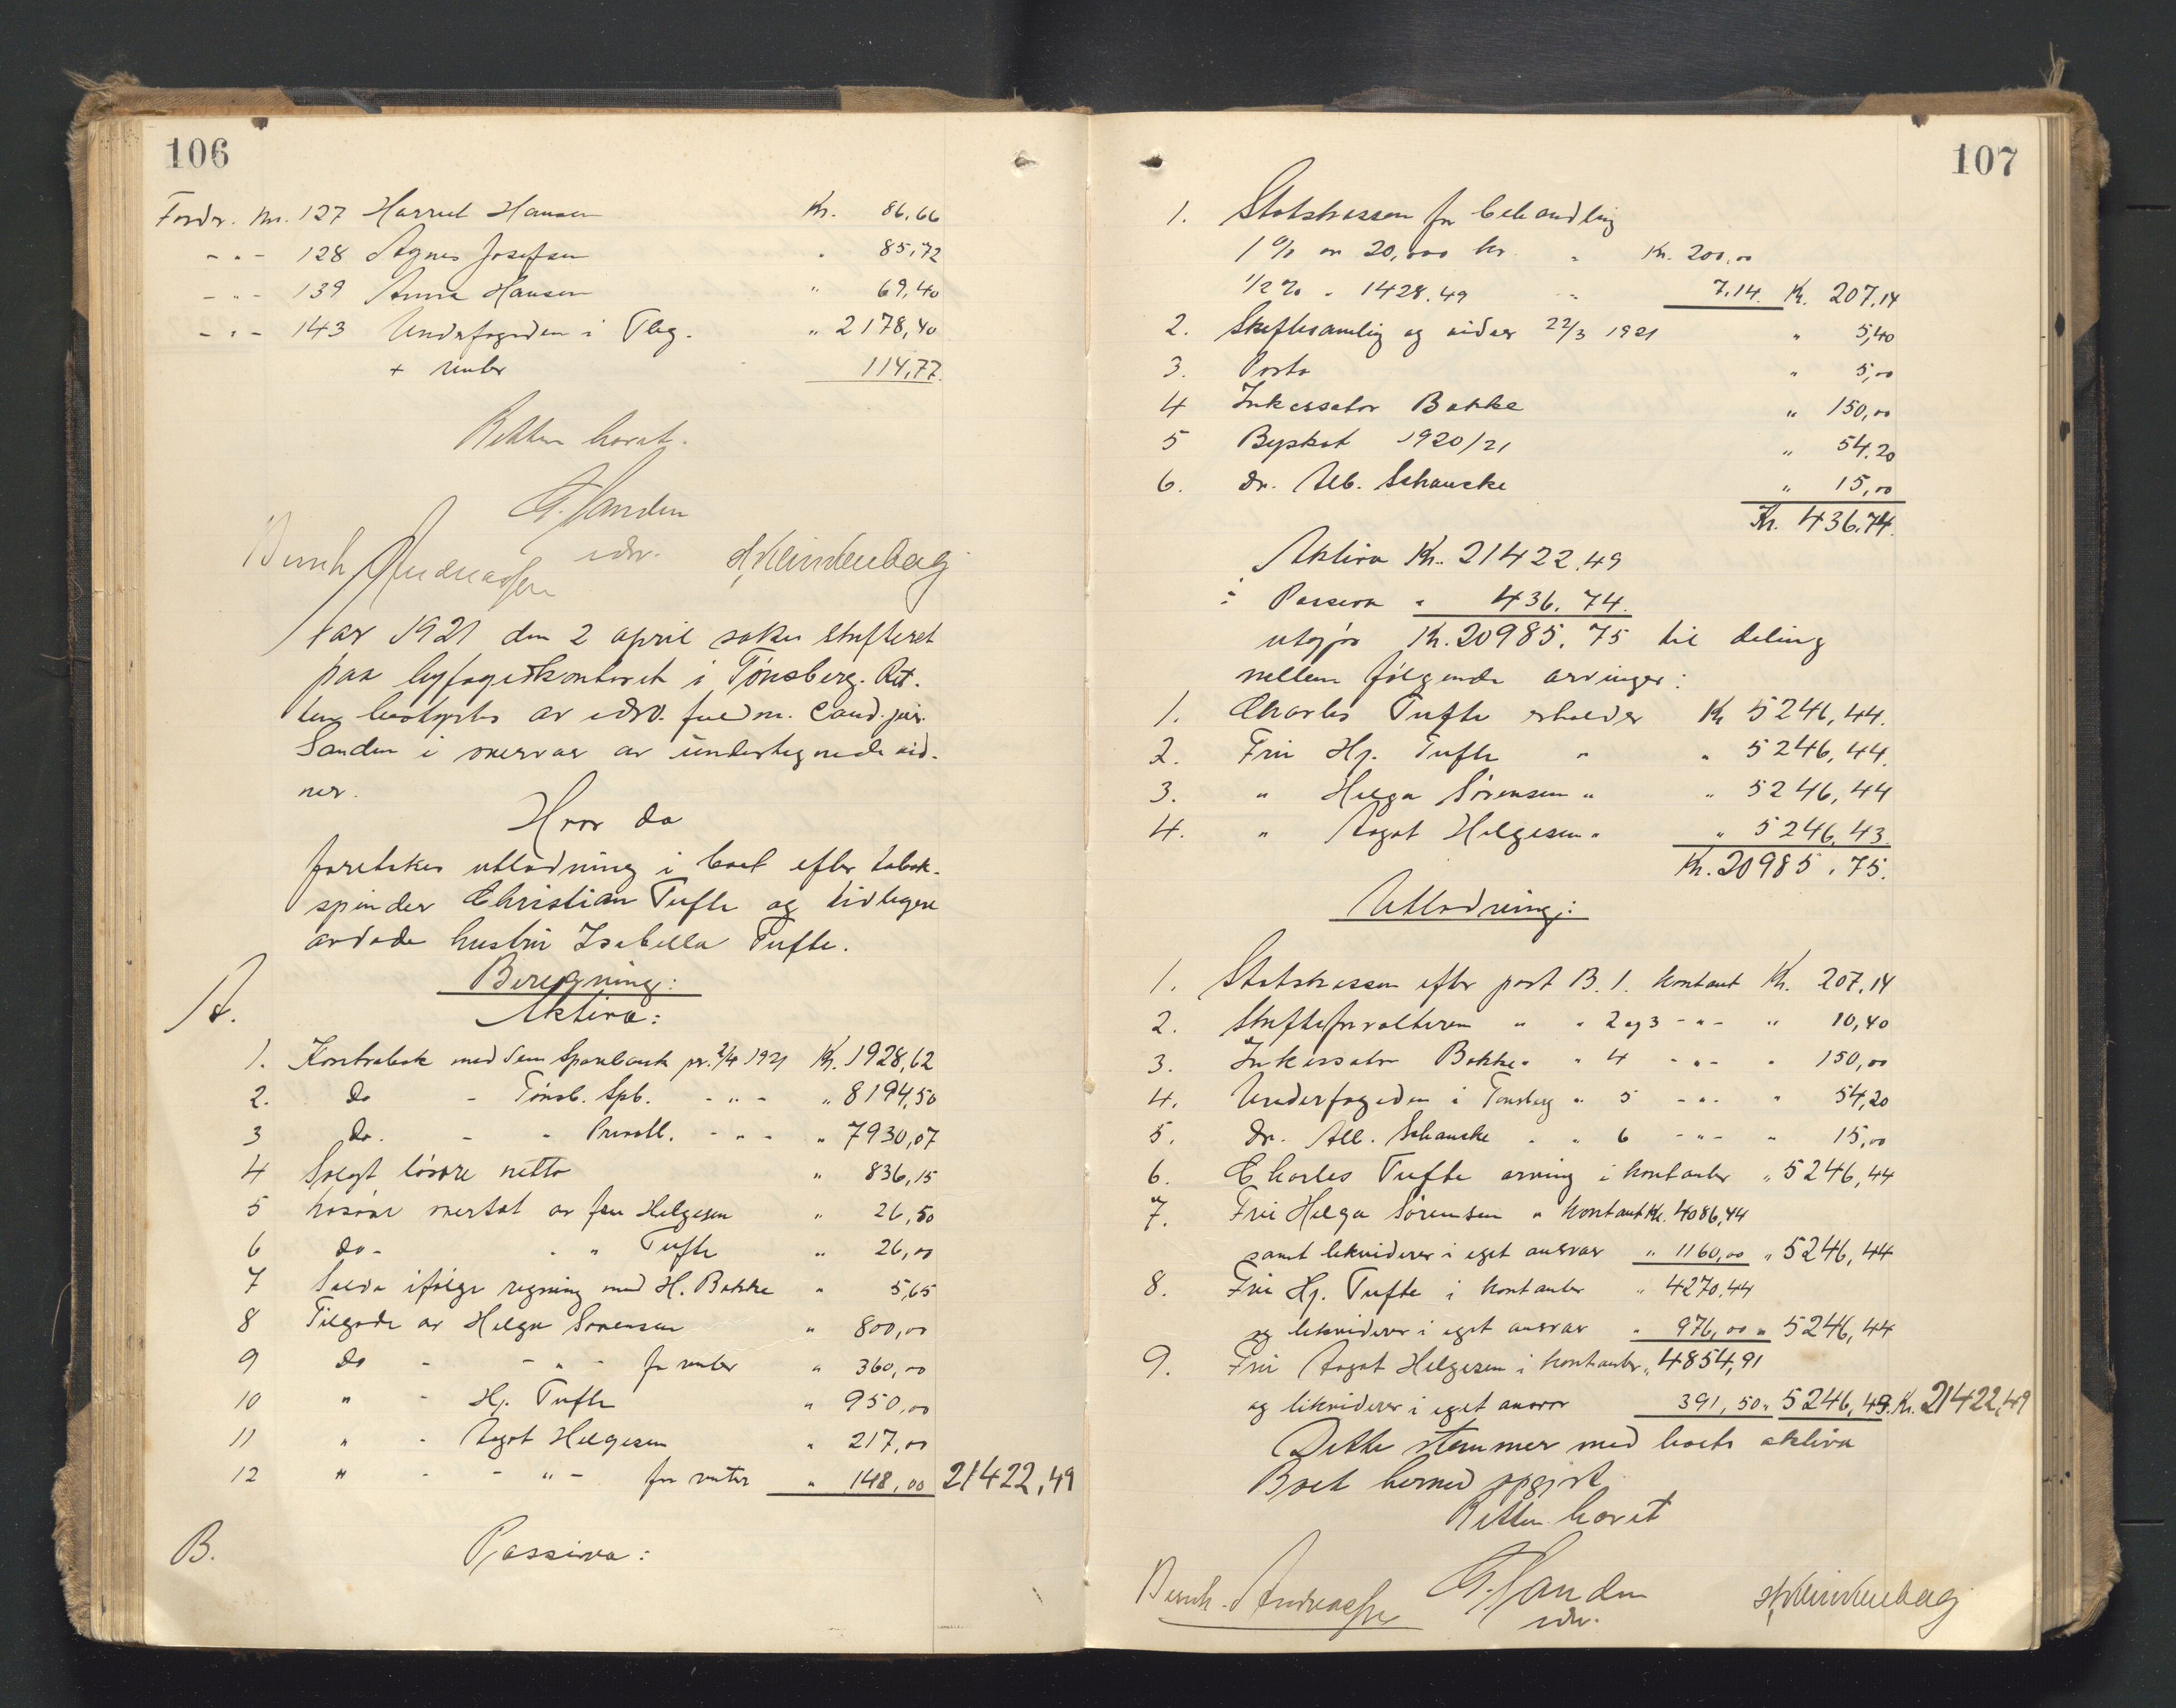 106
Fordr. nr. 127 Harriet Hansen Kr. 86,66
- " - 128 Agnes Josefsen " 85,72
- " - 139 Anna Hansen " 69,40
- " - 143 Underfogden i Tbg. " 2178,40
+ renter 114,77
Retten hævet.
G. Sanden
edsv.
Bernh. Andreassen
Aar 1921 den 2 april sattes skifteret
paa byfogedkontoret i Tønsberg. Ret-
ten bestyrtes av edsv. fuldm. cand. jur.
Sanden i overvær av undertegnede vid-
ner.
Hvor da
foretokes utlodning i boet efter tobak-
spinder Christian Tufte og tidligere
avdøde hustru Isabella Tufte.
Beregning:
A. Aktiva:
1. Kontrabok med Sem Sparebank pr. 2/4 1921 Kr. 1928,62
2. do - Tønsb. Spb. - " - " 8194,50
3 do. - " Privatb. - " - " 7930,07
4 Solgt løsøre netto " 836,15
5 løsøre overtat av fru Helgesen " 26,50
6 do - - " Tufte " 26,00
7 Saldo ifølge regning med H. Bakke " 5,65
8 Tilgode av Helga Sørensen " 800,00
9 do - - " - for renter " 360,00
10 " - Hj. Tufte " 950,00
11 " - Aagot Helgesen " 217,00
12 " - - " - for renter " 148,00 21422,49
B. Passiva:
107
1. Statskassen for behandling
1 % av 20,000 kr. " Kr. 200,00
1/2 % " 1428.49 " 7,14. Kr. 207,14
2. Skiftesamling og vidner 22/3 1921 " 5,40
3. Porto " 5,00
4 Inkassator Bakke " 150,00
5 Byskat 1920/21 " 54.20
6. Dr. Alb. Schancke " 15,00
Kr. 436.74.
Aktiva Kr. 21422.49
÷ Passiva " 436.74.
utgjør Kr. 20985.75 til deling
mellem følgende arvinger:
1. Charles Tufte erholder Kr 5246,44.
2. Fru Hj. Tufte " " 5246,44.
3. " Helga Sørensen " " 5246,44
4. " Aagot Helgesen " " 5246,43.
Kr. 20985.75.
Utlodning:
1. Statskassen efter post B. 1. kontant Kr. 207,14
2. Skifteforvalteren " " 2 og 3 - " - " 10,40
3. Inkassator Bakke " " 4 - " - " 150,00
4. Underfogeden i Tønsberg " 5 - " - " 54,20
5. Dr. Alb. Schancke " " 6 - " - " 15,00
6. Charles Tufte arving i kontanter " 5246,44
7. Fru Helga Sørensen " kontant Kr. 4086,44
samt likviderer i eget ansvar " 1160,00 " 5246,44
8. Fru Hj. Tufte i kontanter " 4270,44
og likviderer i eget ansvar " 976,00 " 5246,44
9. Fru Aagot Helgesen i kontanter " 4854,91
og likviderer i eget ansvar 391,50 " 5246,43. Kr. 21422,49
Dette stemmer med boets aktiva
Boet hermed opgjort.
Retten hævet
Bernh. Andreassen G. Sanden
edsv.